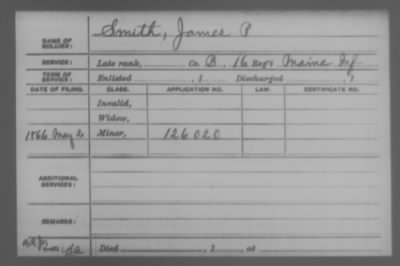 NAME OF SOLDIER: Smith, James P
SERVICE: Late rank, Co. B, 16 Reg't Maine Inf
TERM OF SERVICE: Enlisted , 1 Discharged , 1
DATE OF FILING. CLASS. APPLICATION NO. LAW. CERTIFICATE NO.
Invalid,
Widow,
1866 May 2 Minor, 126020
ADDITIONAL SERVICES:
REMARKS:
Died , 1 , at